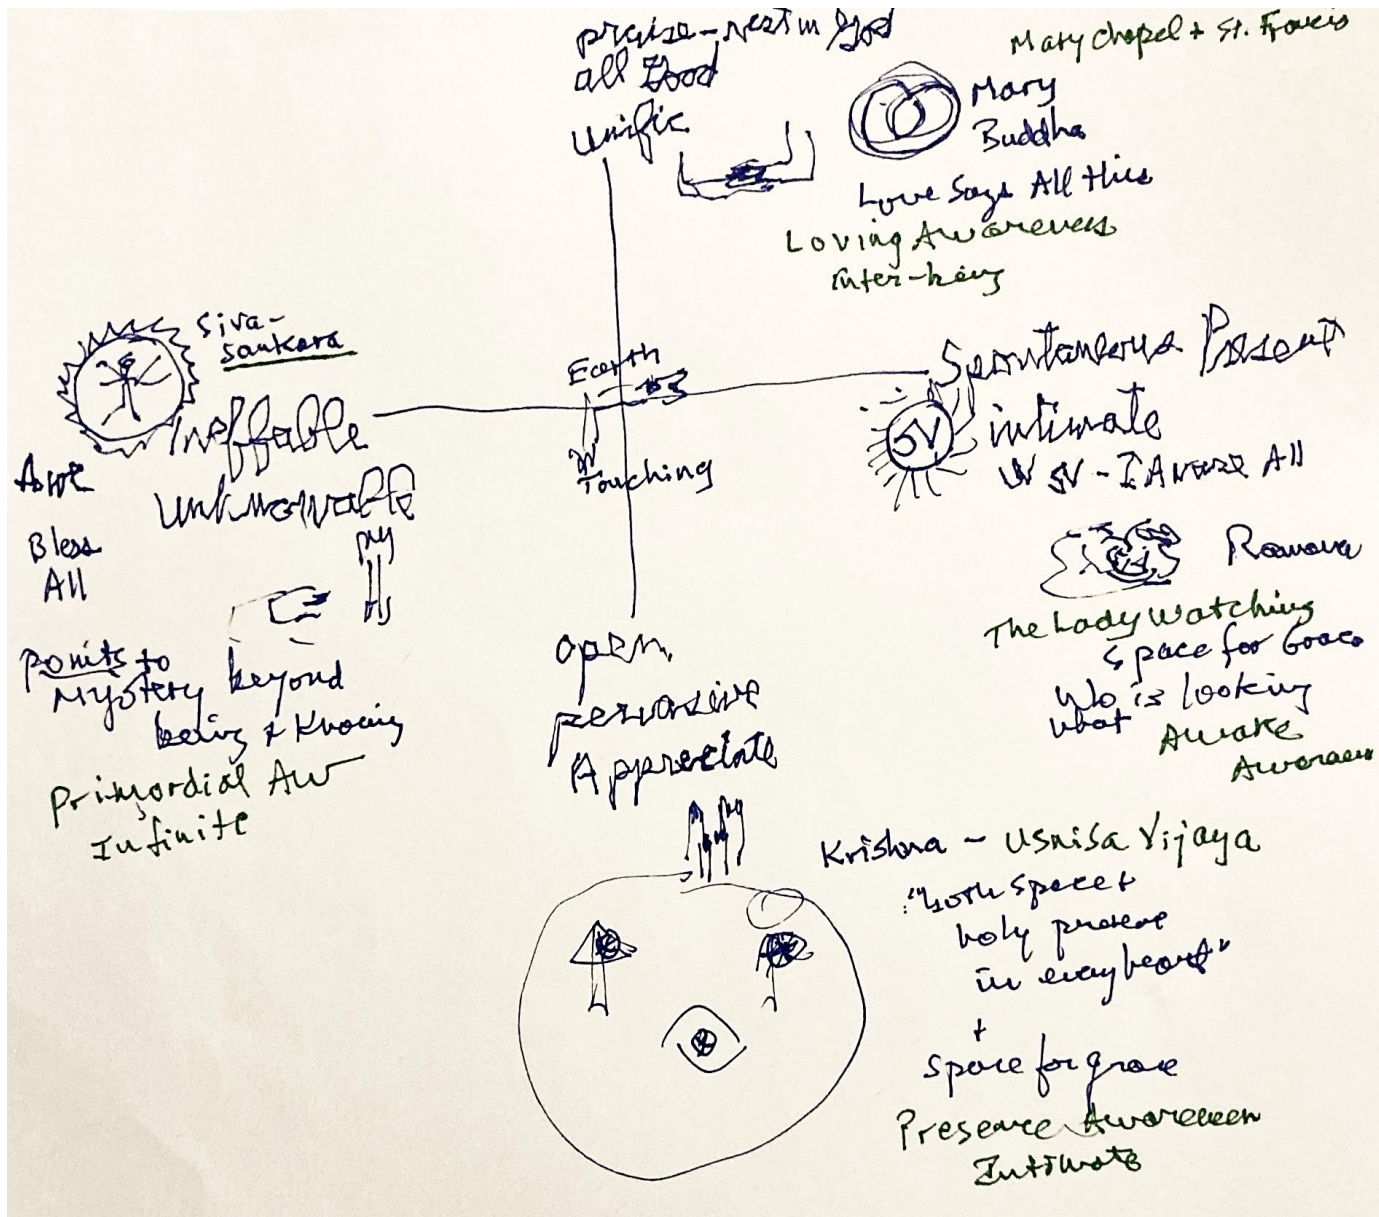 praise - rest in God
all Good
unific
Mary chapel + St. Francis
Mary
Buddha
Love Says All this
Loving Awareness
inter-being
Siva-
Sankara
Ineffable
unknowable
Awe
Bless
All
points to
Mystery beyond
being + Knowing
Primordial Aw
Infinite
Earth
Touching
Spontaneous Present
intimate
SV
SV - I Aware All
Ramana
The Lady Watching
space for Grace
Who is looking
what
Awake
Awareness
open
pervasive
Appreciate
Krishna - Usnisa Vijaya
"both space +
holy presence
in every heart"
+
space for grace
Presence Awareness
Intimate